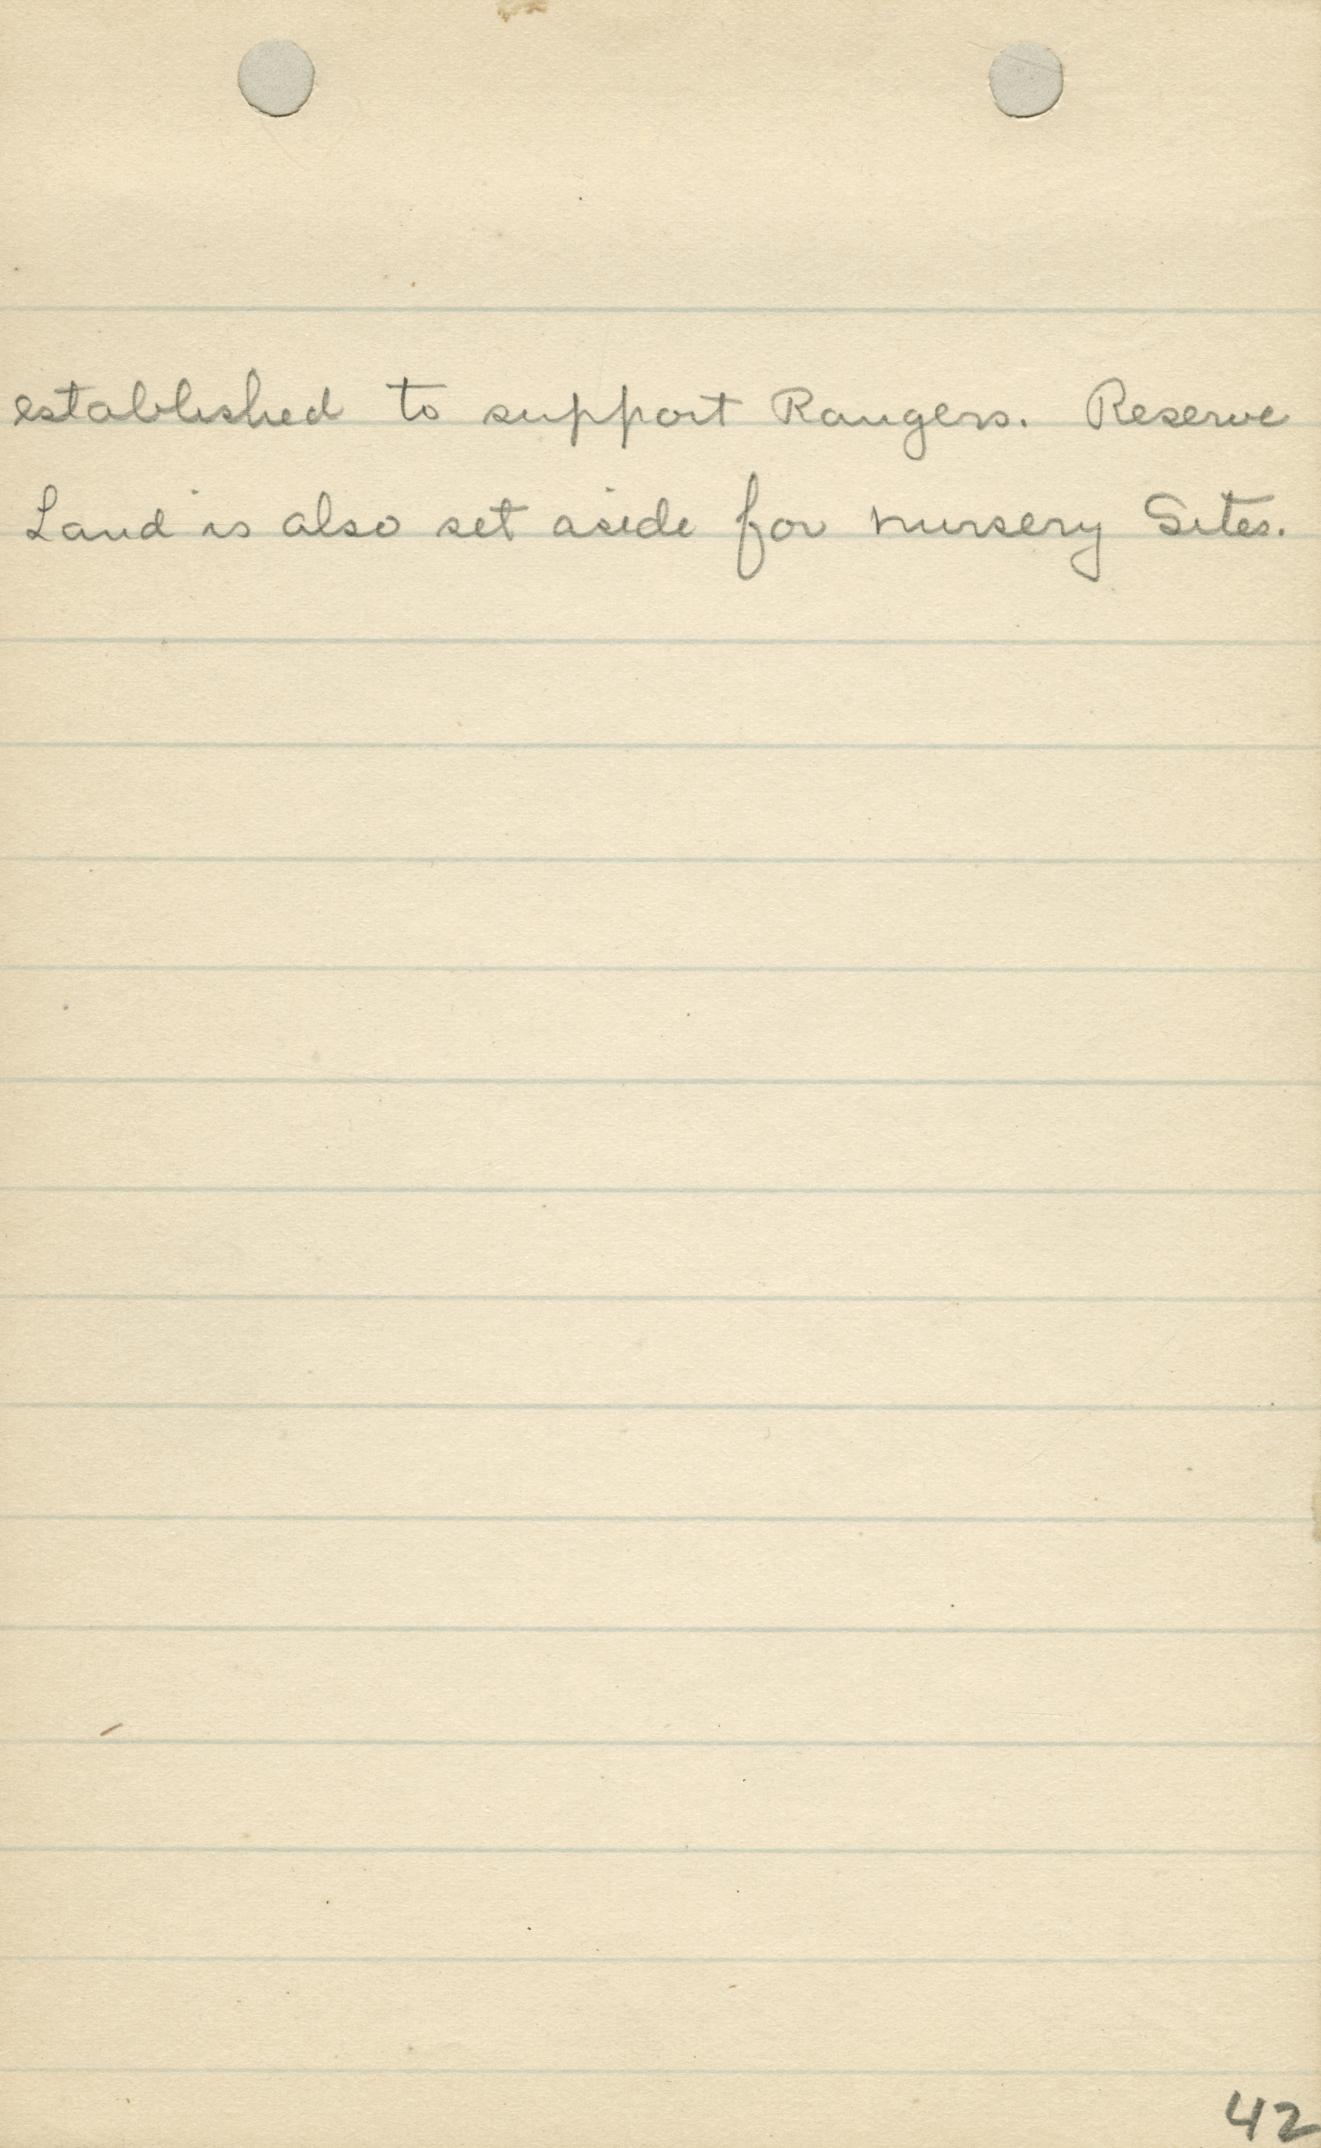 established to support Rangers. Reserve
Land is also set aside for nursery Sites.
42